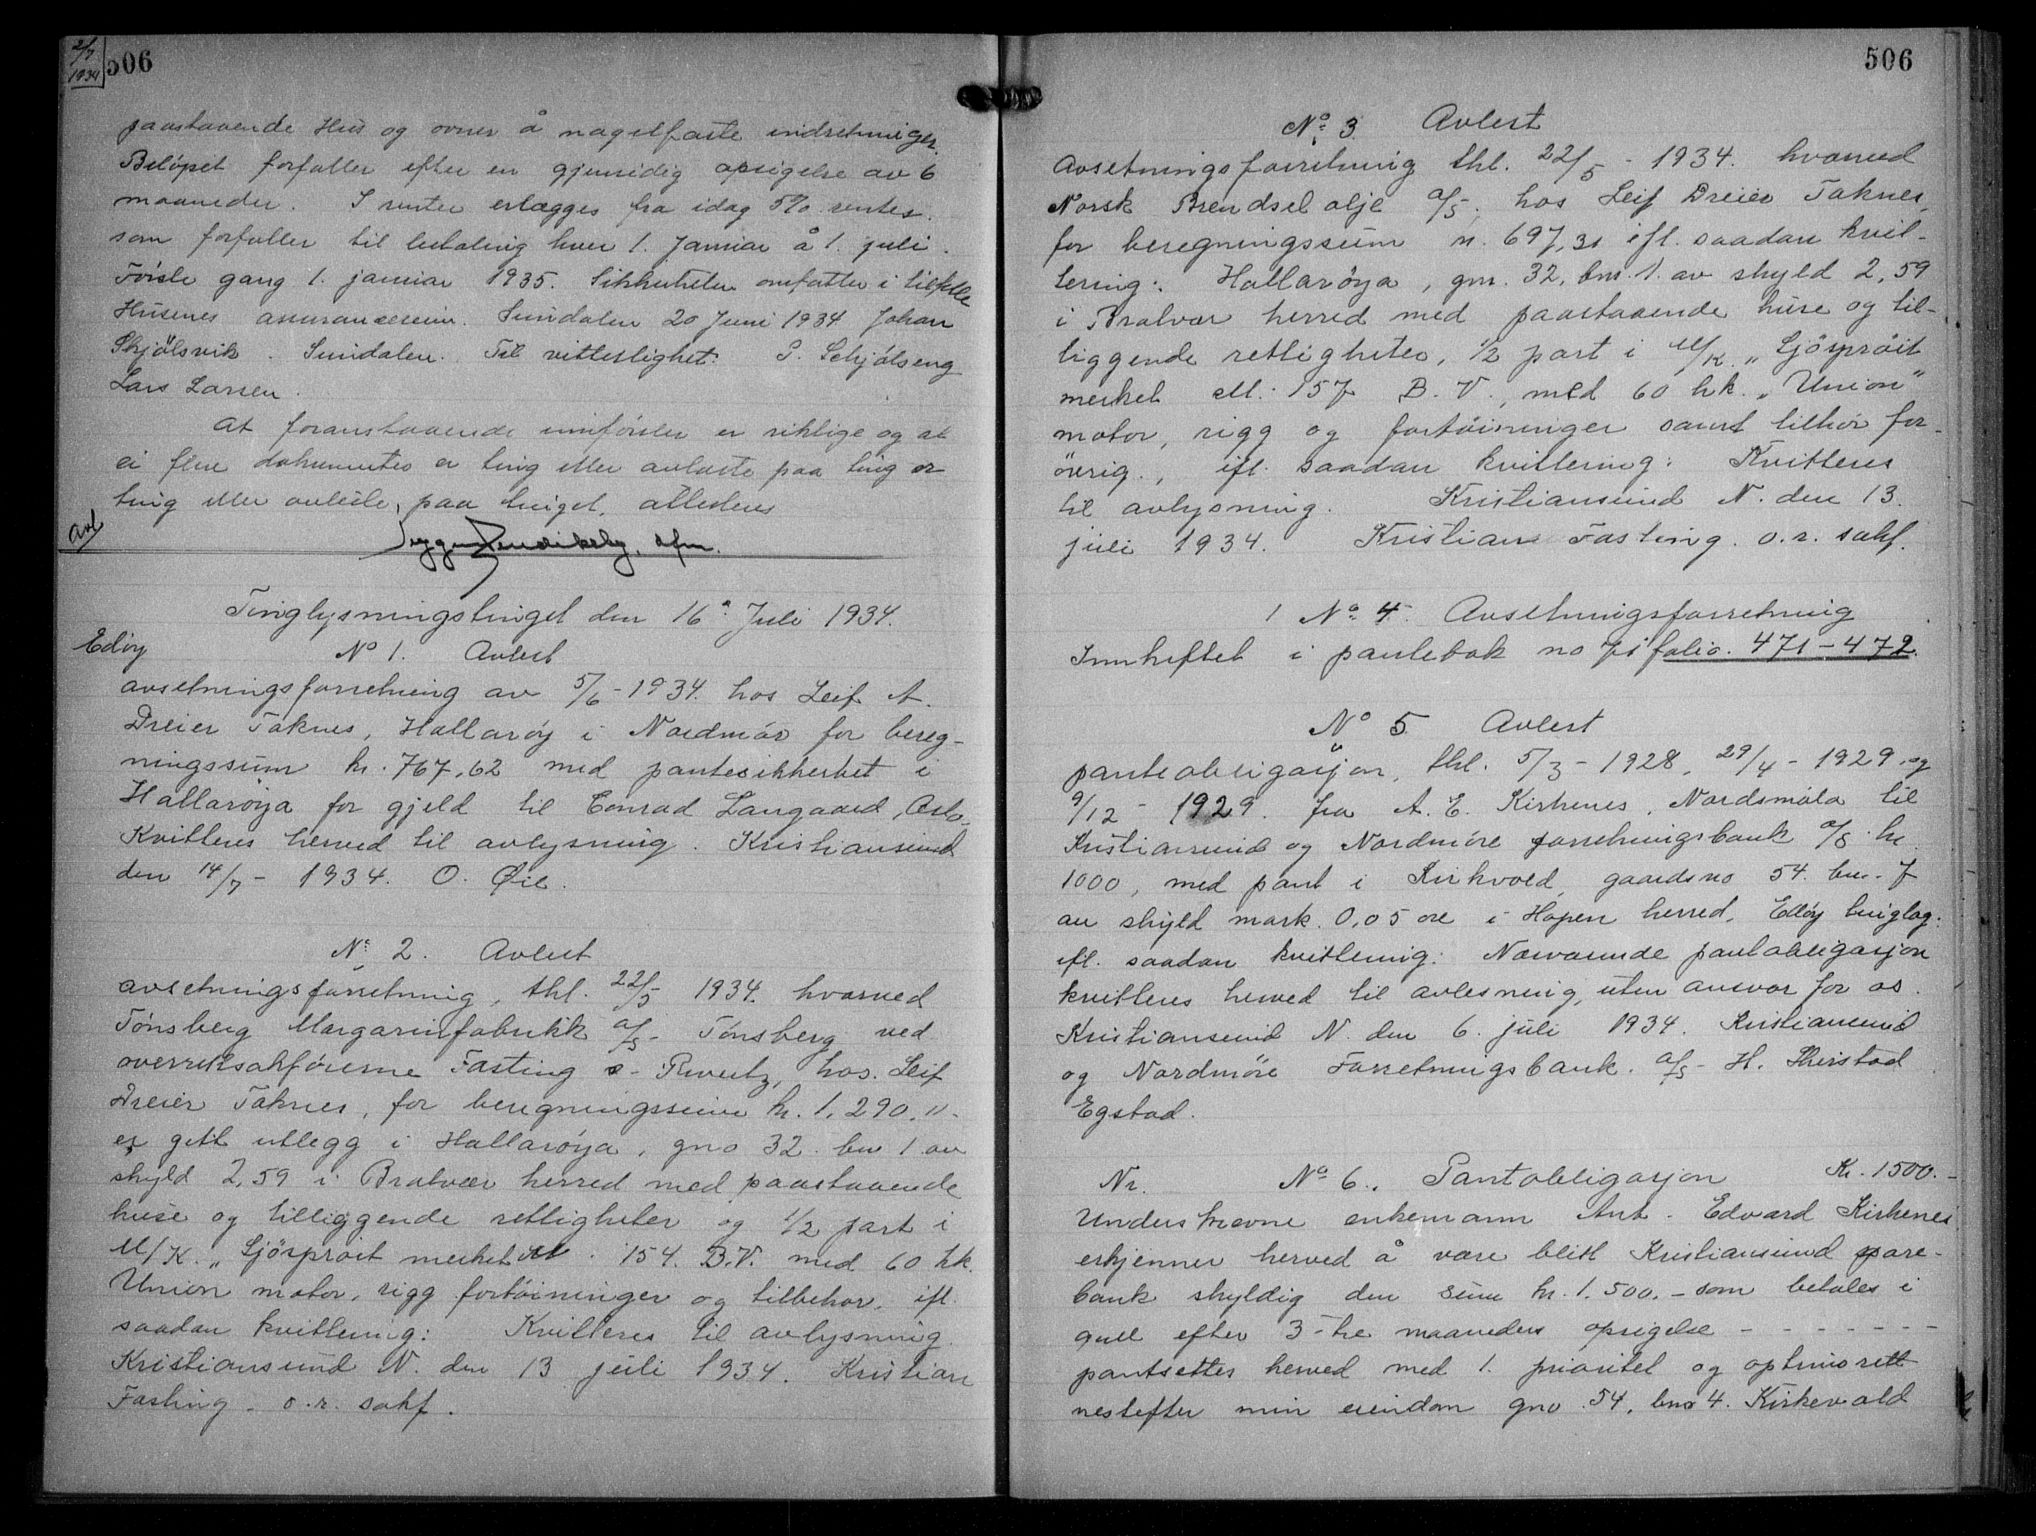 2/7
1934
506
paastaaende Hus og ovner å nagelfaste indretninger.
Beløpet forfaller efter en gjensidig opsigelse av 6
maaneder. I renter erlægges fra idag 5% rentes.
som forfaller til betaling hver 1. Januar å 1. juli.
Første gang 1. januar 1935. Sikkerheten omfatter i tilfelle
Husenes assurancesum. Sundalen 20 Juni 1934 Johan
Skjølsvik. Sundalen. Til vitterlighet: P. Schjølseng
Lars Larsen.
At foranstaaende innførsler er riktige og at
ei flere dokumenter er ting eller avlæste paa ting er
ting eller avleste, paa tinget, attesteres
Avl
Tinglysningstinget den 16de Juli 1934.
Edøy
No 1. Avlest
avsetningsforretning av 5/6-1934. hos Leif A.
Dreier Taknes, Hallarøy i Nordmør for bereg-
ningssum kr. 767,62 med pantesikkerhet i
Hallarøya for gjeld til Conrad Langaard, Oslo.
Kvitteres herved til avlysning. Kristiansund
den 14/7 - 1934. O. Øie.
No 2. Avlest
avsetningsforretning, thl. 22/5 1934. hvorved
Tønsberg Margarinfabrikk a/s - Tønsberg ved
overretsakførerne Fasting o- Reventz, hos. Leif
Dreier Taknes, for beregningssum kr. 1.290,"-
er gett utlegg i Hallarøya, gno 32. bno 1 av
skyld 2,59 i Bratvær herred med paastaaende
huse og tilliggende rettigheter og 1/2 part i
M/K. „Sjøsprøit merket M. 154. B.V. med 60 hk.
Union motor, rigg fortøininger og tilbehør, ifl.
saadan kvittering: Kvitteres til avlysning.
Kristiansund N. den 13 juli 1934. Kristian
Fasting. o.r. sakf.
506
No 3. Avlest
Avsetningsforretning thl. 22/5 - 1934. hvorved
Norsk Brendselolje a/s, hos Leif Dreier Taknes,
for beregningssum kr. 697,31 ifl. saadan kvit-
tering: Hallarøya, gnr. 32, bnr. 1. av skyld 2,59
i Bratvær herred med paastaaende huse og til-
liggende rettigheter, 1/2 part i M/K. „Sjøsprøit
merket M. 157 B.V., med 60 hk. „Union"
motor, rigg og fortøininger samt tilhør for-
øvrig., ifl. saadan kvittering: Kvitteres
til avlysning. Kristiansund N. den 13.
juli 1934. Kristian Fasting. o.r. sakf.
No 4. Avsetningsforretning
Innheftet i pantebok no 71 folio. 471-472.
No 5 Avlest
panteobligasjon, thl. 5/3-1928, 29/4-1929 og
9/12 - 1929. fra A. E. Kirkenes, Nordsmøla til
Kristiansund og Nordmøre forretningsbank a/s kr.
1000, med pant i Kirkvold, gaardsno 54. bnr. 7
av skyld mark 0,05 øre i Hopen herred, Edøy tinglag.
ifl. saadan kvittering: Nærværende pantobligasjon
kvitteres herved til avlesning, uten ansvar for os.
Kristiansund N. den 6. juli 1934. Kristiansund
og Nordmøre Forretningsbank. a/s- H. Skeistad
Egstad.
Nr. No 6. Pantobligasjon Kr. 1500.-
Underskrevne enkemann Ant. Edvard Kirkenes
erkjenner herved å være blitt Kristiansund spare-
bank skyldig den sum kr. 1.500.- som betales i
gull efter 3-tre maaneders opsigelse - - - - - - -
pantsettes herved med 1. prioritet og optrinsrett
nestefter min eiendom gno. 54, bno 4. Kirkevold